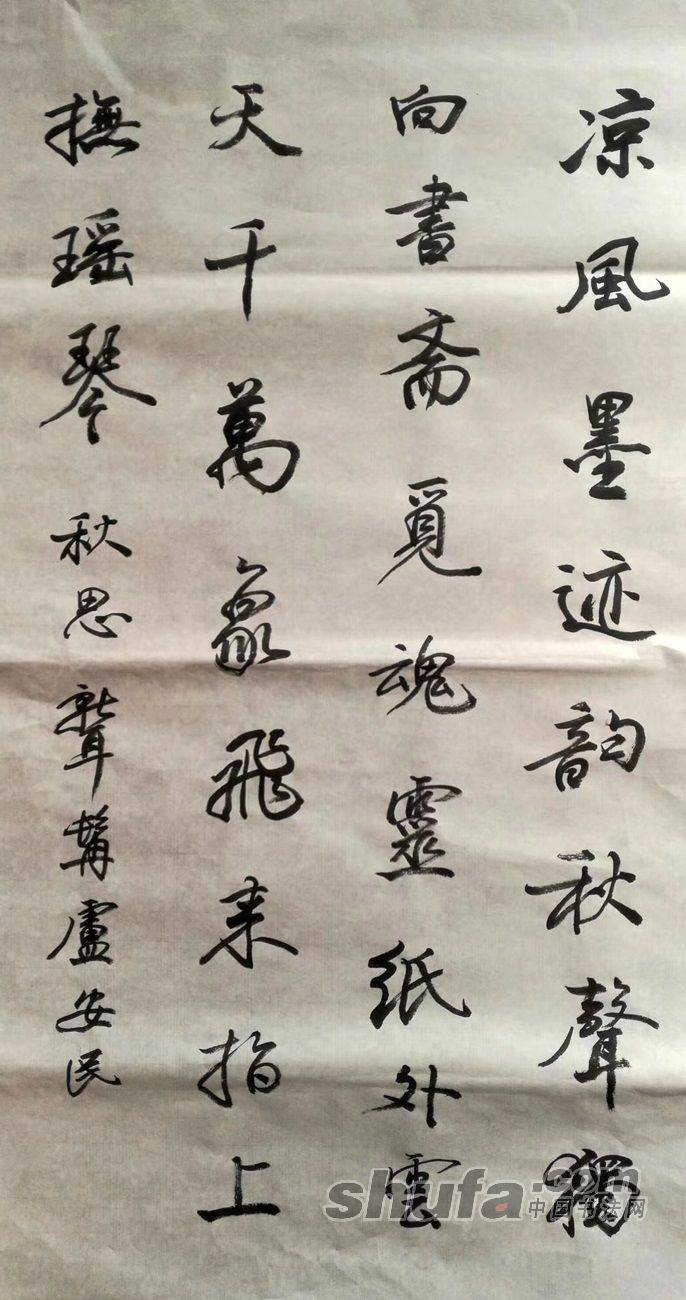 凉風墨迹韵秋聲獨
向書斋覓魂靈纸外雲
天千萬象飛来指上
撫瑶琴 秋思 聋髯盧安民
shufa.com
中国书法网